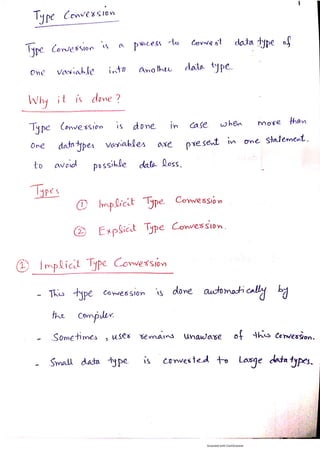 1
Type Conversion
Type Conversion is a process to convert data type of
one variable into another data type.
Why it is done?
Type Conversion is done in case when more than
one data types variables are present in one statement.
to avoid possible data loss.
Types
① Implicit Type Conversion
② Explicit Type Conversion.
① Implicit Type Conversion
- This type conversion is done automatically by
the compiler.
- Sometimes, user remains unaware of this conversion.
- Small data type is converted to Large data types.
Scanned with CamScanner